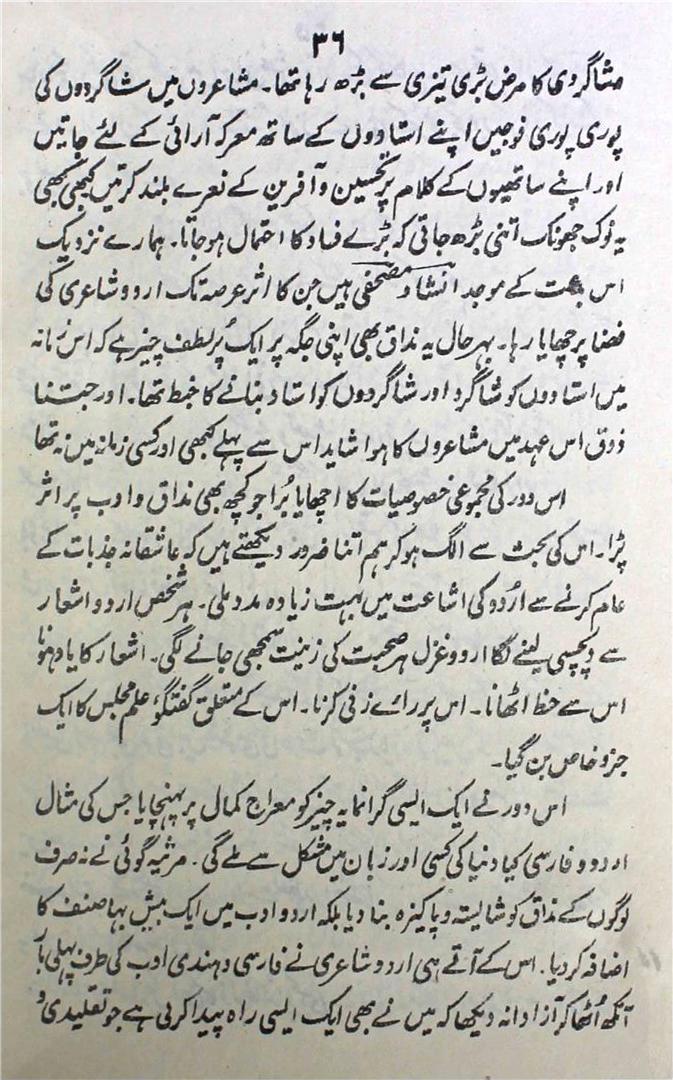 ۳۶
شاگردی کا مرض بڑی تیزی سے بڑھ رہا تھا۔ مشاعروں میں شاگردوں کی
پوری پوری فوجیں اپنے استادوں کے ساتھ معرکہ آرائی کے لئے جاتیں
اور اپنے ساتھیوں کے کلام پر تحسین و آفرین کے نعرے بلند کرتیں کبھی کبھی
یہ نوک جھونک اتنی بڑھ جاتی کہ بڑے فساد کا احتمال ہو جاتا۔ ہمارے نزدیک
اس کے موجد انشاؔ و مصحفیؔ ہیں جن کا اثر عرصہ تک اردو شاعری کی
فضا پر چھایا رہا۔ بہر حال یہ مذاق بھی اپنی جگہ پر ایک پُر لطف چیز ہے کہ اس زمانہ
میں استادوں کو شاگرد اور شاگردوں کو استاد بنانے کا خبط تھا۔ اور جتنا
ذوق اس عہد میں مشاعروں کا ہوا شاید اس سے پہلے کبھی اور کسی زمانہ میں نہ تھا
اس دور کی مجموعی خصوصیات کا اچھا یا بُرا جو کچھ بھی مذاق و ادب پر اثر
پڑا۔ اس کی بحث سے الگ ہو کر ہم اتنا ضرور دیکھتے ہیں کہ عاشقانہ جذبات کے
عام کرنے سے اُردو کی اشاعت میں بہت زیادہ مدد ملی۔ ہر شخص اردو اشعار
سے دلچسپی لینے لگا اردو غزل ہر صحبت کی زینت سمجھی جانے لگی۔ اشعار کا یاد ہونا
اس سے حظ اٹھانا۔ اس پر رائے زنی کرنا۔ اس کے متعلق گفتگو، علم مجلس کا ایک
جزو خاص بن گیا۔
اس دور نے ایک ایسی گرانمایہ چیز کو معراج کمال پر پہنچایا جس کی مثال
اردو و فارسی کیا دنیا کی کسی اور زبان میں مشکل سے ملے گی۔ مرثیہ گوئی نے نہ صرف
لوگوں کے مذاق کو شایستہ و پاکیزہ بنا دیا بلکہ اردو ادب میں ایک بیش بہا صنف کا
اضافہ کر دیا۔ اس کے آتے ہی اردو شاعری نے فارسی و ہندی ادب کی طرف پہلی بار
آنکھ اُٹھا کر آزادانہ دیکھا کہ میں نے بھی ایک ایسی راہ پیدا کر لی ہے جو تقلیدی و